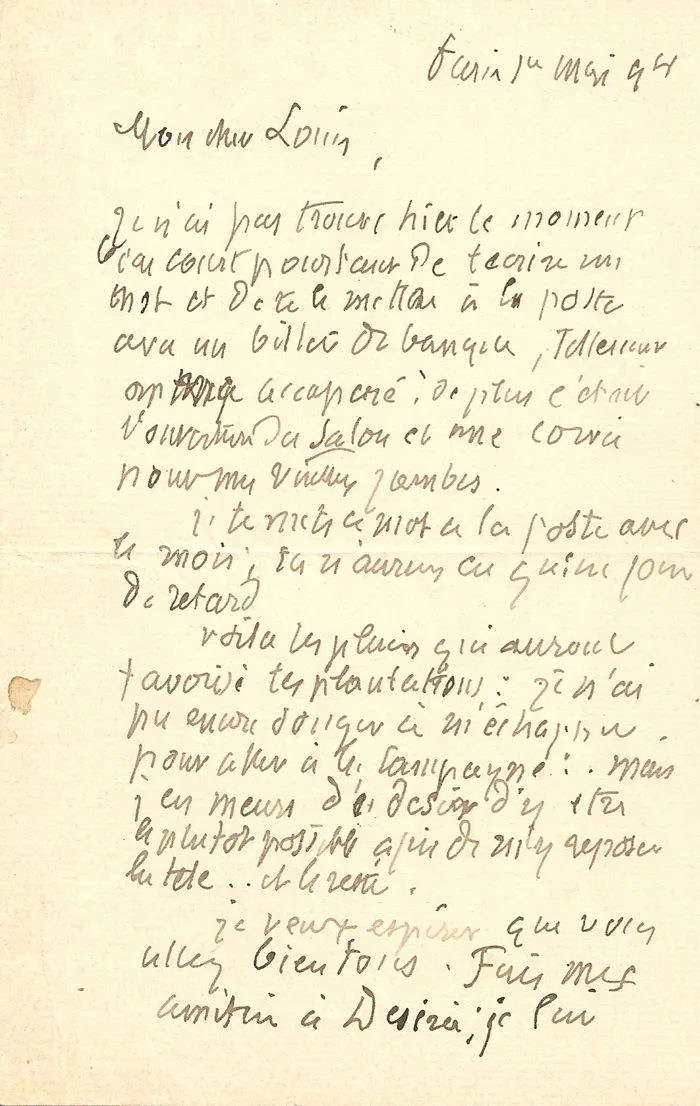 Paris 1er Mai 98
Mon cher Louis,
je n'ai pas trouvé hier le moment
court pourtant de t'écrire un
mot et de te le mettre à la poste
avec un billet de banque, tellement
on accaparé ; de plus c'était
l'ouverture du Salon et une corvée
pour mes vieilles jambes.
je te mets ce mot à la poste avec
le mois ; tu n'auras eu qu'un jour
de retard
voilà les pluies qui auront
favorisé tes plantations : je n'ai
pu encore songer à m'échapper
pour aller à la campagne : . mais
j'en meurs de désir d'y être
le plutot possible afin de m'y reposer
la tête .. et le reste .
je veux espérer que vous
allez bien tous . Fais mes
amitiés à Désirée ; je lui